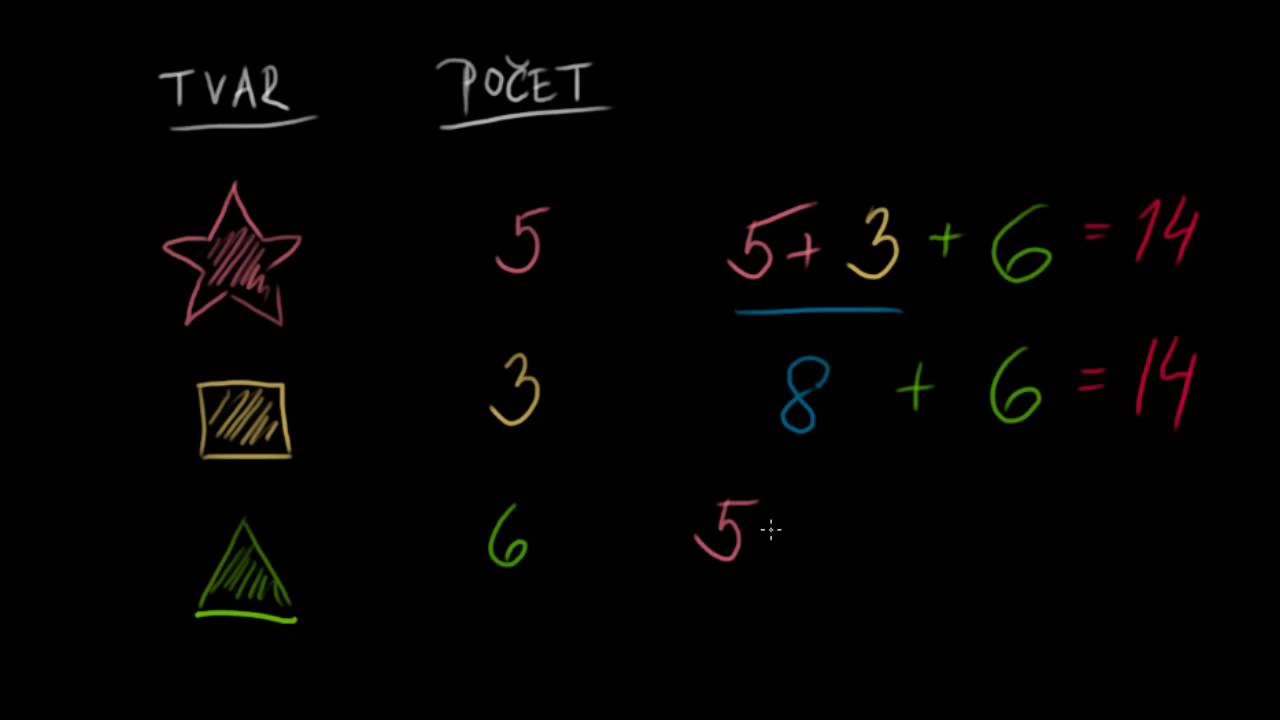 TVAR POČET
5 5 + 3 + 6 = 14
3 8 + 6 = 14
6 5